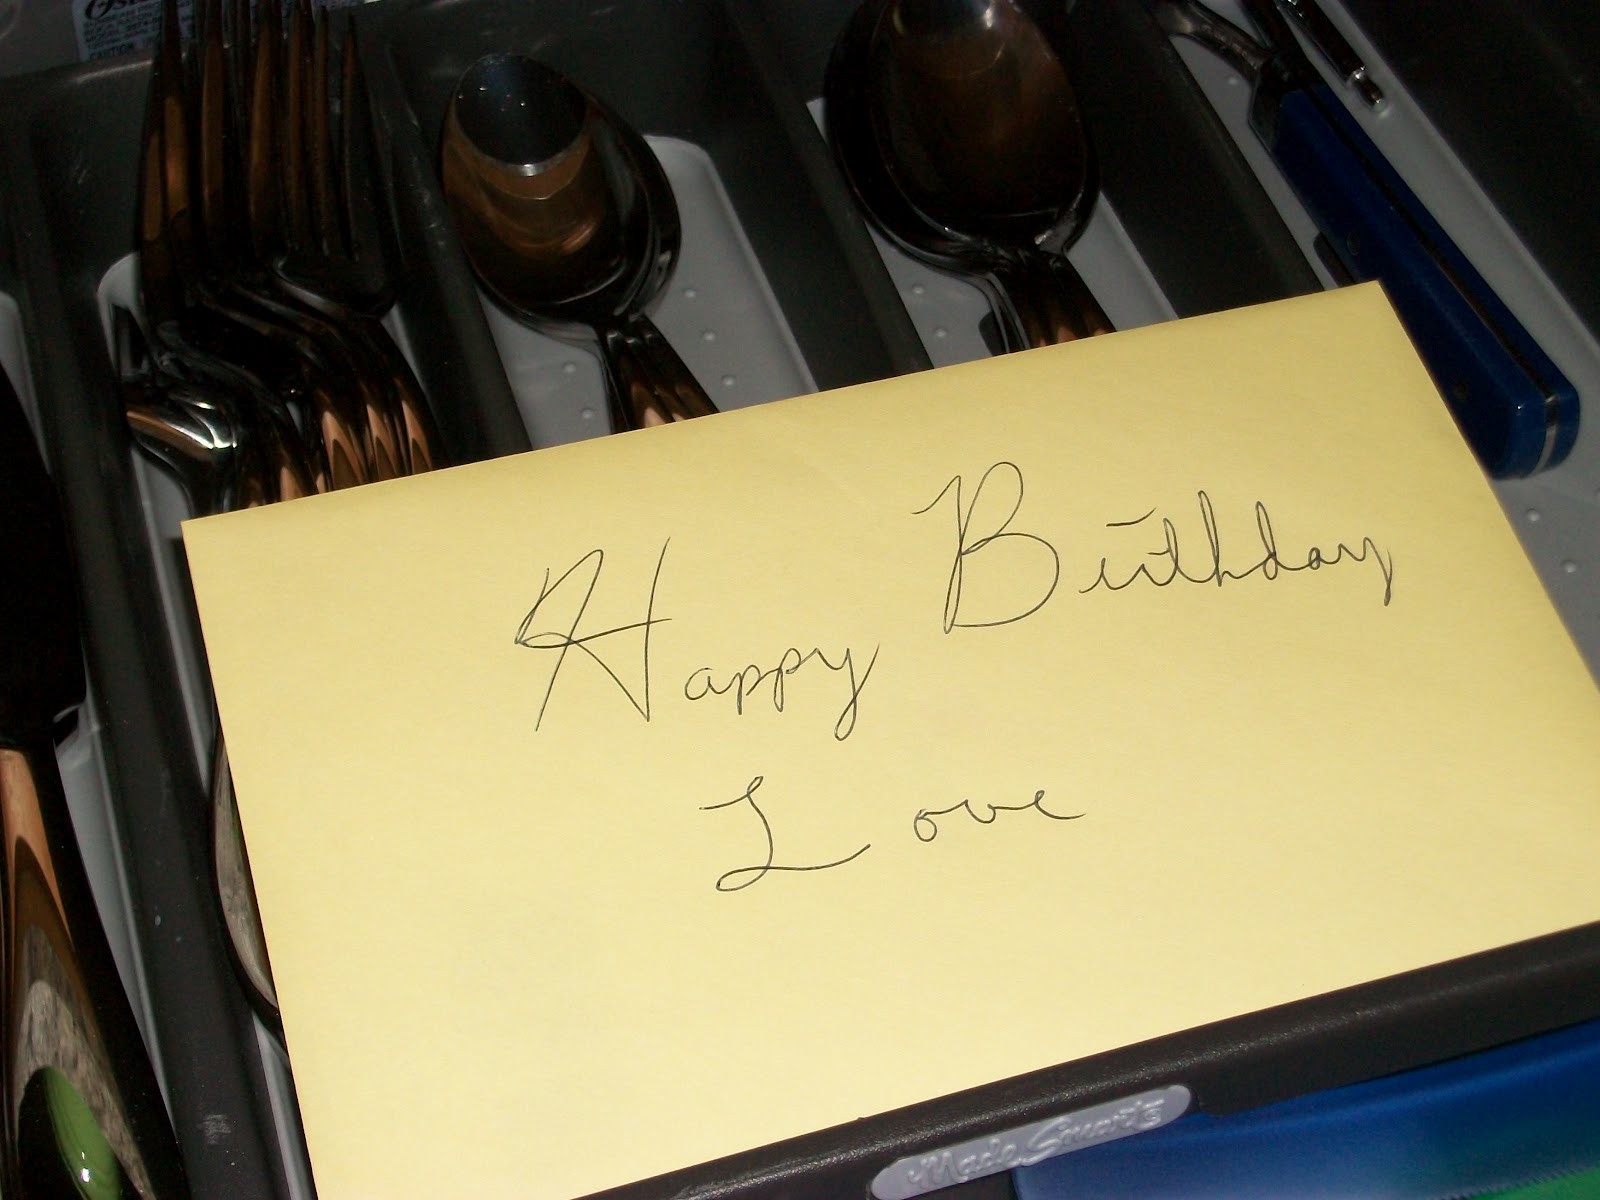 Oster
Happy Birthday
Love
Made Smarts